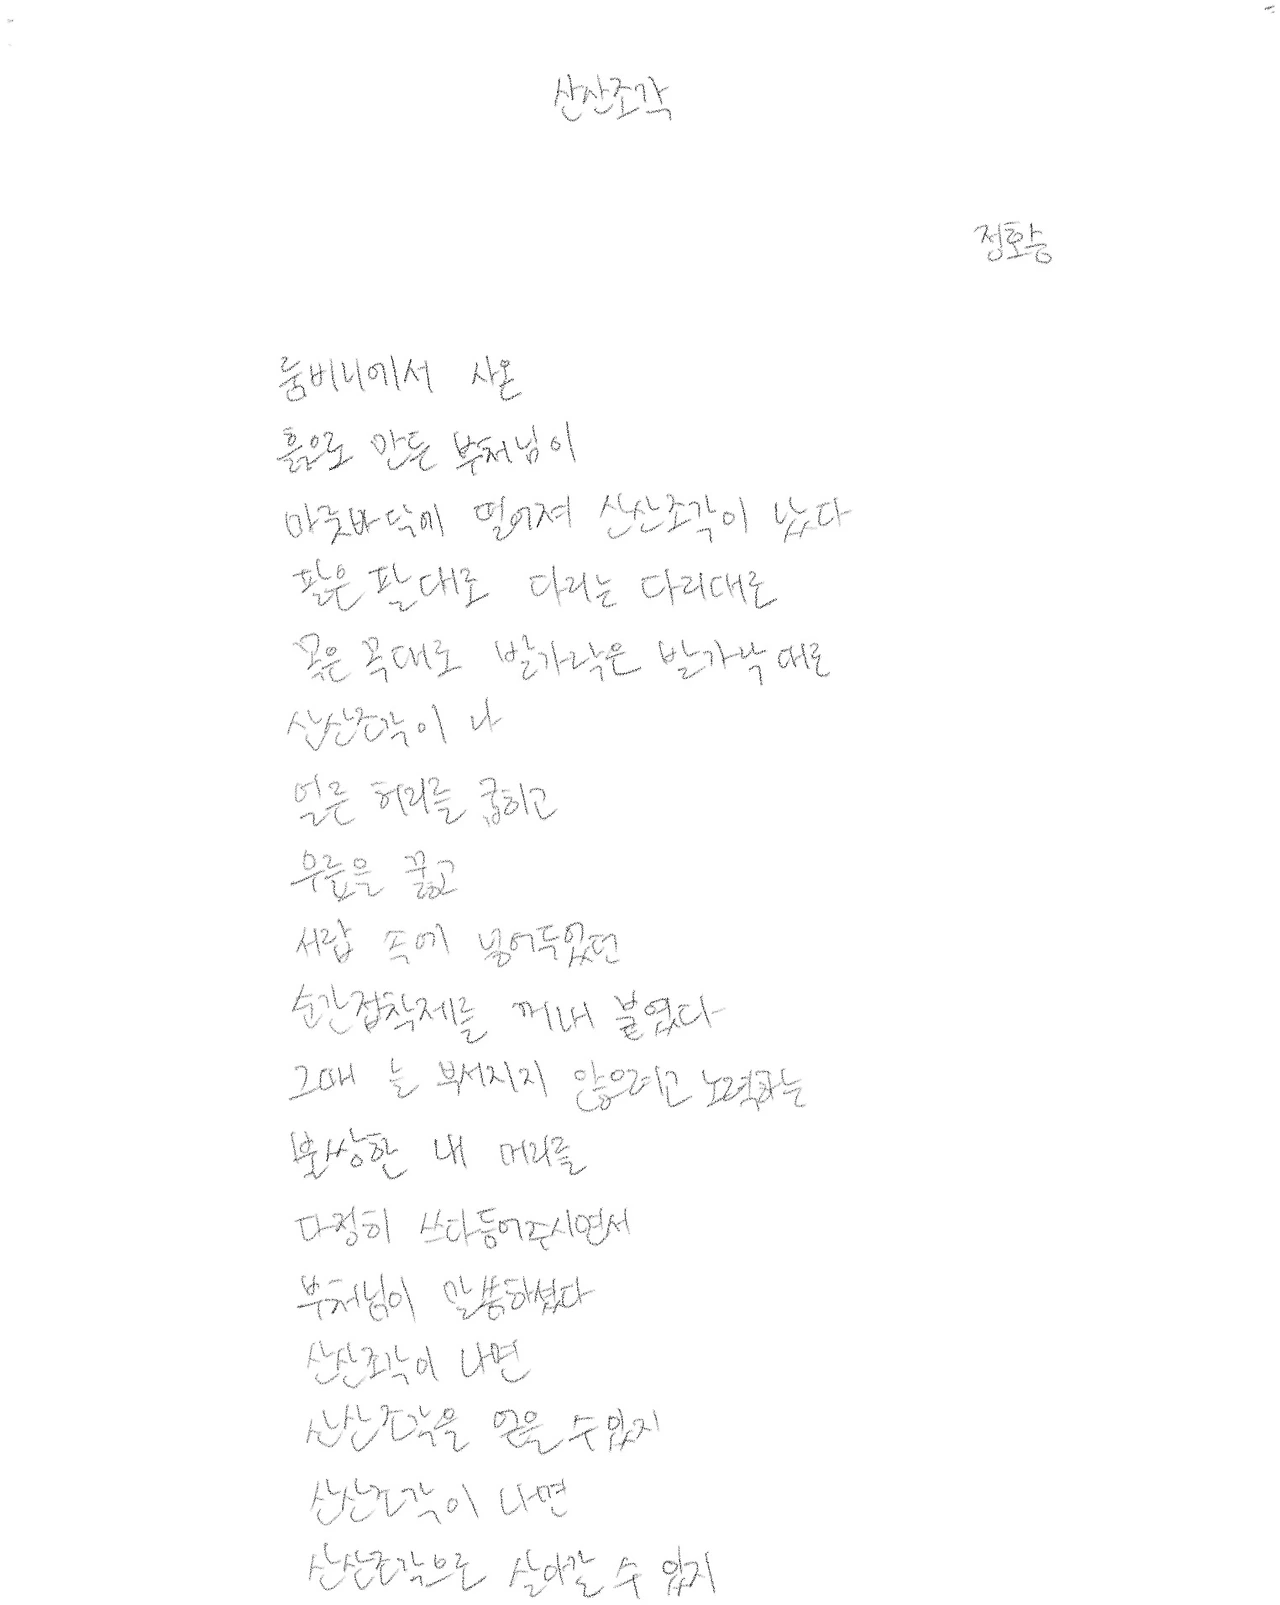 산산조각
정호승
룸비니에서 사온
흙으로 만든 부처님이
마룻바닥에 떨어져 산산조각이 났다
팔은 팔대로 다리는 다리대로
목은 목대로 발가락은 발가락대로
산산조각이 나
얼른 허리를 굽히고
무릎을 꿇고
서랍 속에 넣어두었던
순간접착제를 꺼내 붙였다
그때 늘 부서지지 않으려고 노력하는
불쌍한 내 머리를
다정히 쓰다듬어주시면서
부처님이 말씀하셨다
산산조각이 나면
산산조각을 얻을 수 있지
산산조각이 나면
산산조각으로 살아갈 수 있지